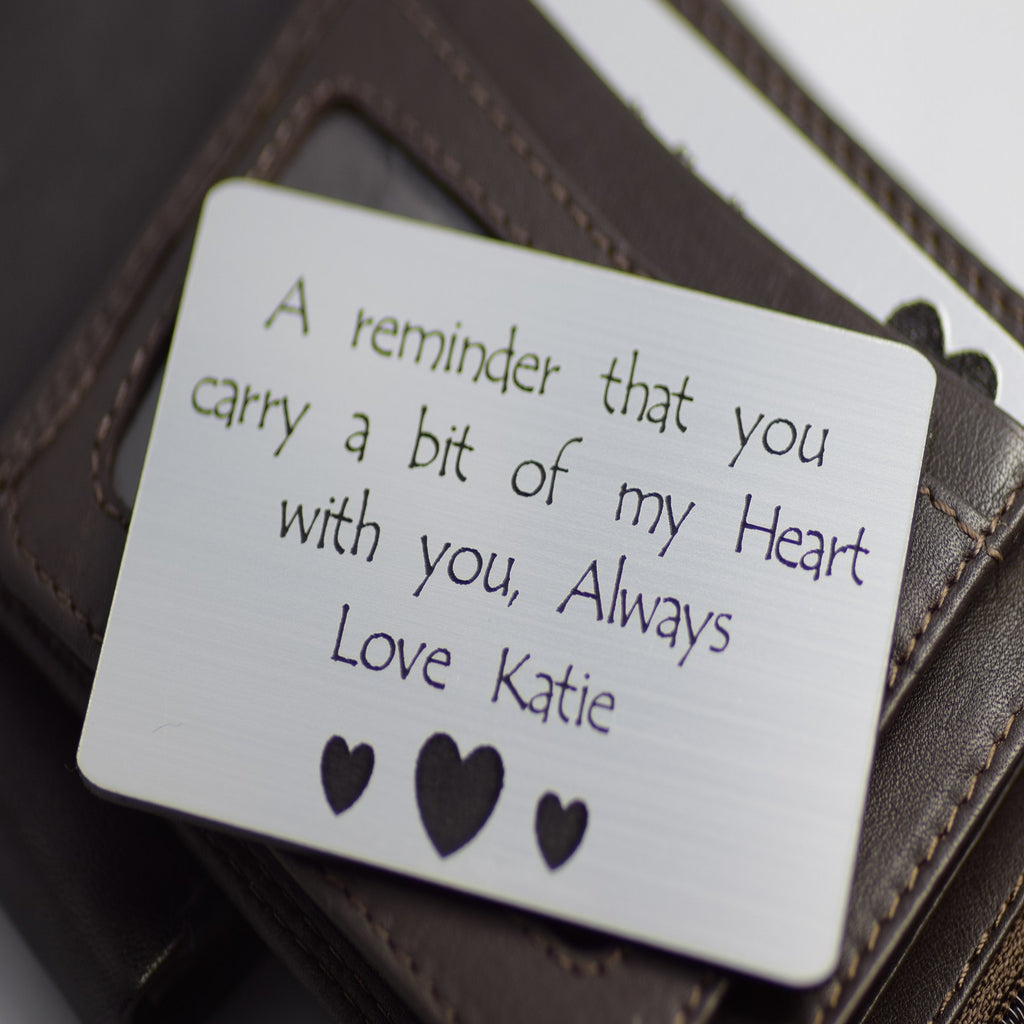 A reminder that you
carry a bit of my Heart
with you, Always
Love Katie